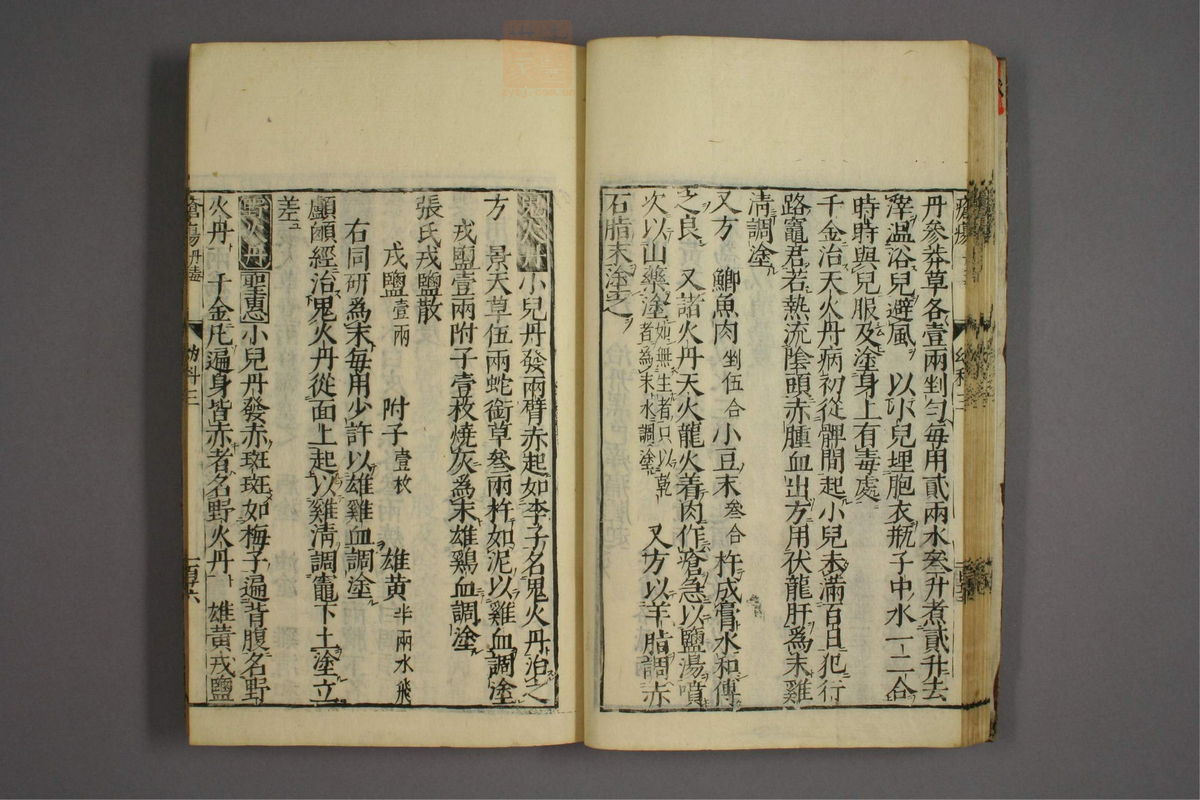 丹參莽草各壹兩剉勻每用貳兩水叁升煮貳升去
滓温浴兒避風 以小兒埋胞衣瓶子中水一二合
時時與兒服及塗身上有毒處
千金治天火丹病初從髀間起小兒未滿百日犯行
路竈君若熱流陰頭赤腫血出方用伏龍肝爲末雞
清調塗
又方 鯽魚肉剉伍合小豆末叁合杵成膏水和傅
之良 又諸火丹天火龍火着肉作瘡急以鹽湯噴
次以山藥塗如無生者只以乾者為末水調塗 又方以羊脂調赤
石脂末塗之
鬼火丹小兒丹發兩臂赤起如李子名鬼火丹治之
方 景天草伍兩蛇銜草叁兩杵如泥以雞血調塗
戎鹽壹兩附子壹枚燒灰爲末雄鷄血調塗
張氏戎鹽散
戎鹽壹兩 附子壹枚 雄黃半兩水飛
右同研爲末每用少許以雄雞血調塗
顱顖經治鬼火丹從面上起以雞清調竈下土塗立
差
野火丹聖惠小兒丹發赤斑斑如梅子遍背腹名野
火丹 千金凡遍身皆赤者名野火丹 雄黃戎鹽
瘡瘍丹毒 幼科三 百六